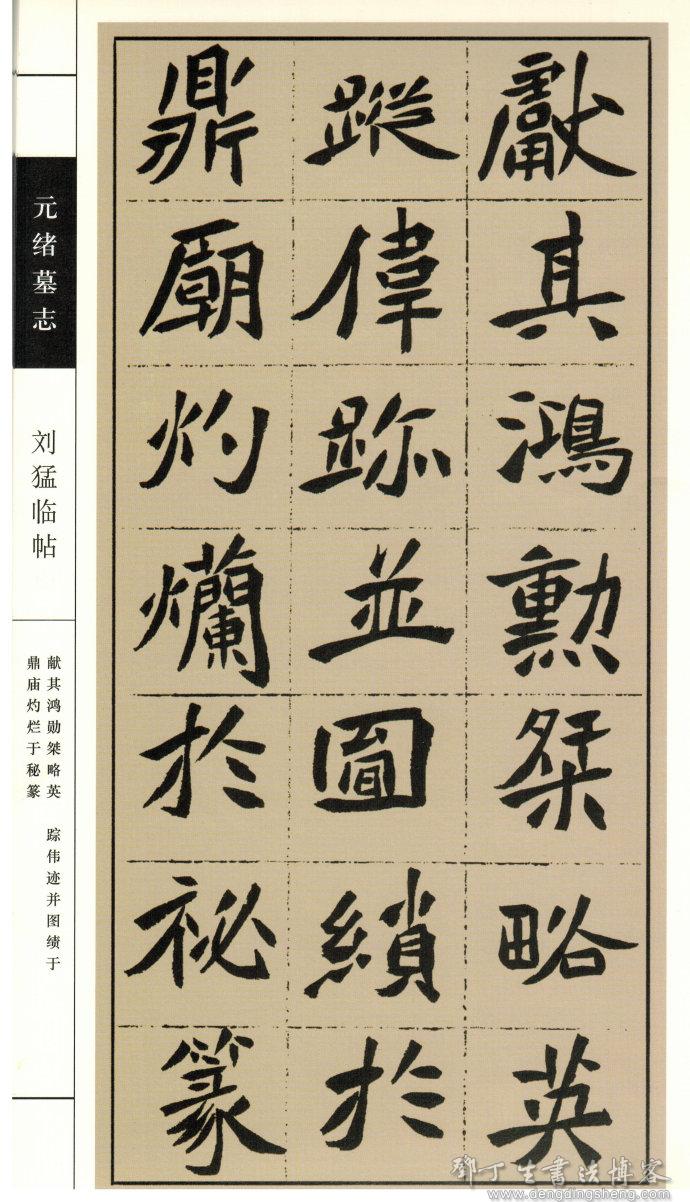 獻其鴻勲桀略英
蹤偉跡並圖績於
鼎廟灼爛於祕篆
元绪墓志
刘猛临帖
献其鸿勋桀略英 踪伟迹并图绩于
鼎庙灼烂于秘篆
鄧丁生書法博客
www.dengdingsheng.com